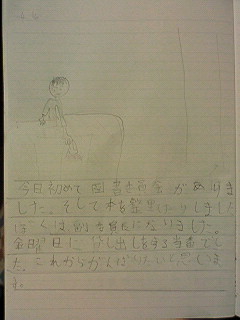 今日初めて図書委員会がありま
した。そして本を整しました
ぼくは副委員長になりました。
金曜日に かし出しをする当番でし
た。これからがんばりたいと思いま
す。